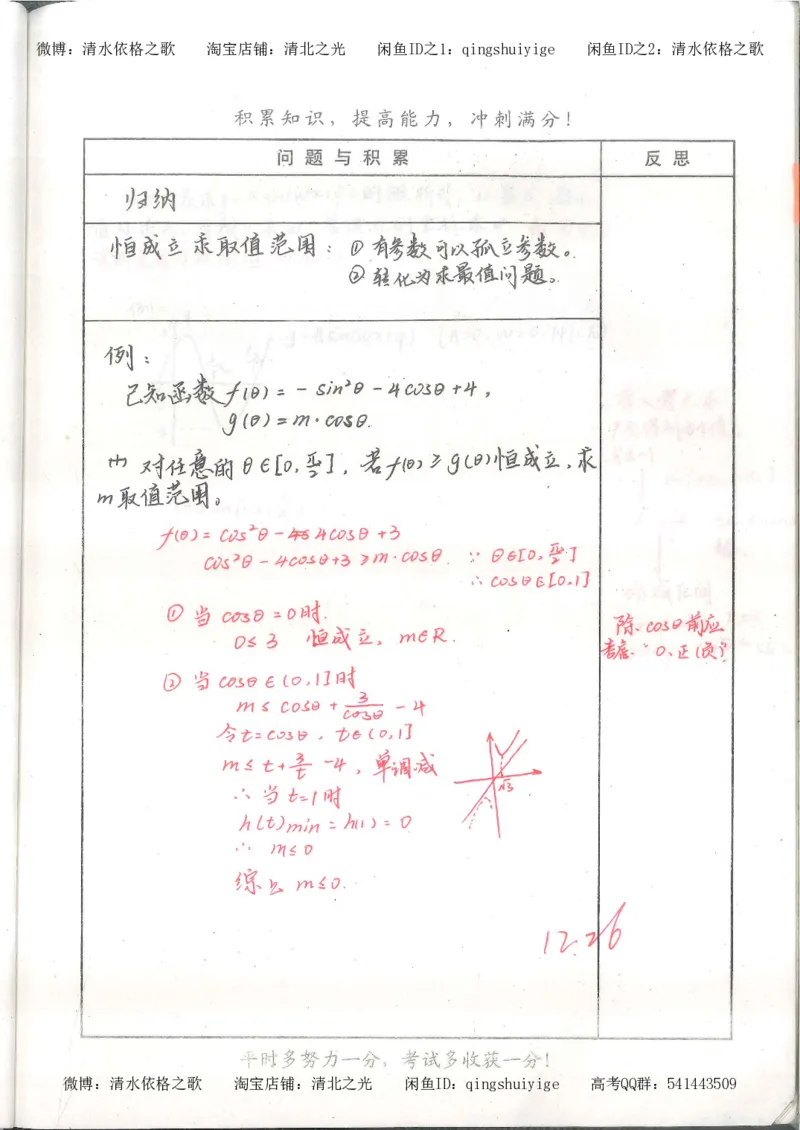 微博：清水依格之歌 淘宝店铺：清北之光 闲鱼ID之1：qingshuiyige 闲鱼ID之2：清水依格之歌
积累知识，提高能力，冲刺满分！
问题与积累 反思
归纳
恒成立求取值范围：① 有参数可以孤立参数。
② 转化为求最值问题。
例：
已知函数 f(θ) = - sin²θ - 4cosθ + 4，
g(θ) = m·cosθ.
(1) 对任意的 θ∈[0, π/2]，若 f(θ) ≥ g(θ) 恒成立，求
m取值范围。
f(θ) = cos²θ - 4cosθ + 3
cos²θ - 4cosθ + 3 ≥ m·cosθ. ∵ θ∈[0, π/2]
∴ cosθ∈[0,1]
① 当 cosθ = 0时.
0 ≤ 3 恒成立，m∈R.
② 当 cosθ∈(0,1]时
m ≤ cosθ + 3/cosθ - 4
令t=cosθ，t∈(0,1]
m ≤ t + 3/t - 4，单调减
√3
∴ 当 t=1时
h(t)min = h(1) = 0
∴ m≤0
综上 m≤0.
除 cosθ 前应
考虑 "0、正(负)"
12.26
平时多努力一分，考试多收获一分！
微博：清水依格之歌 淘宝店铺：清北之光 闲鱼ID：qingshuiyige 高考QQ群：541443509